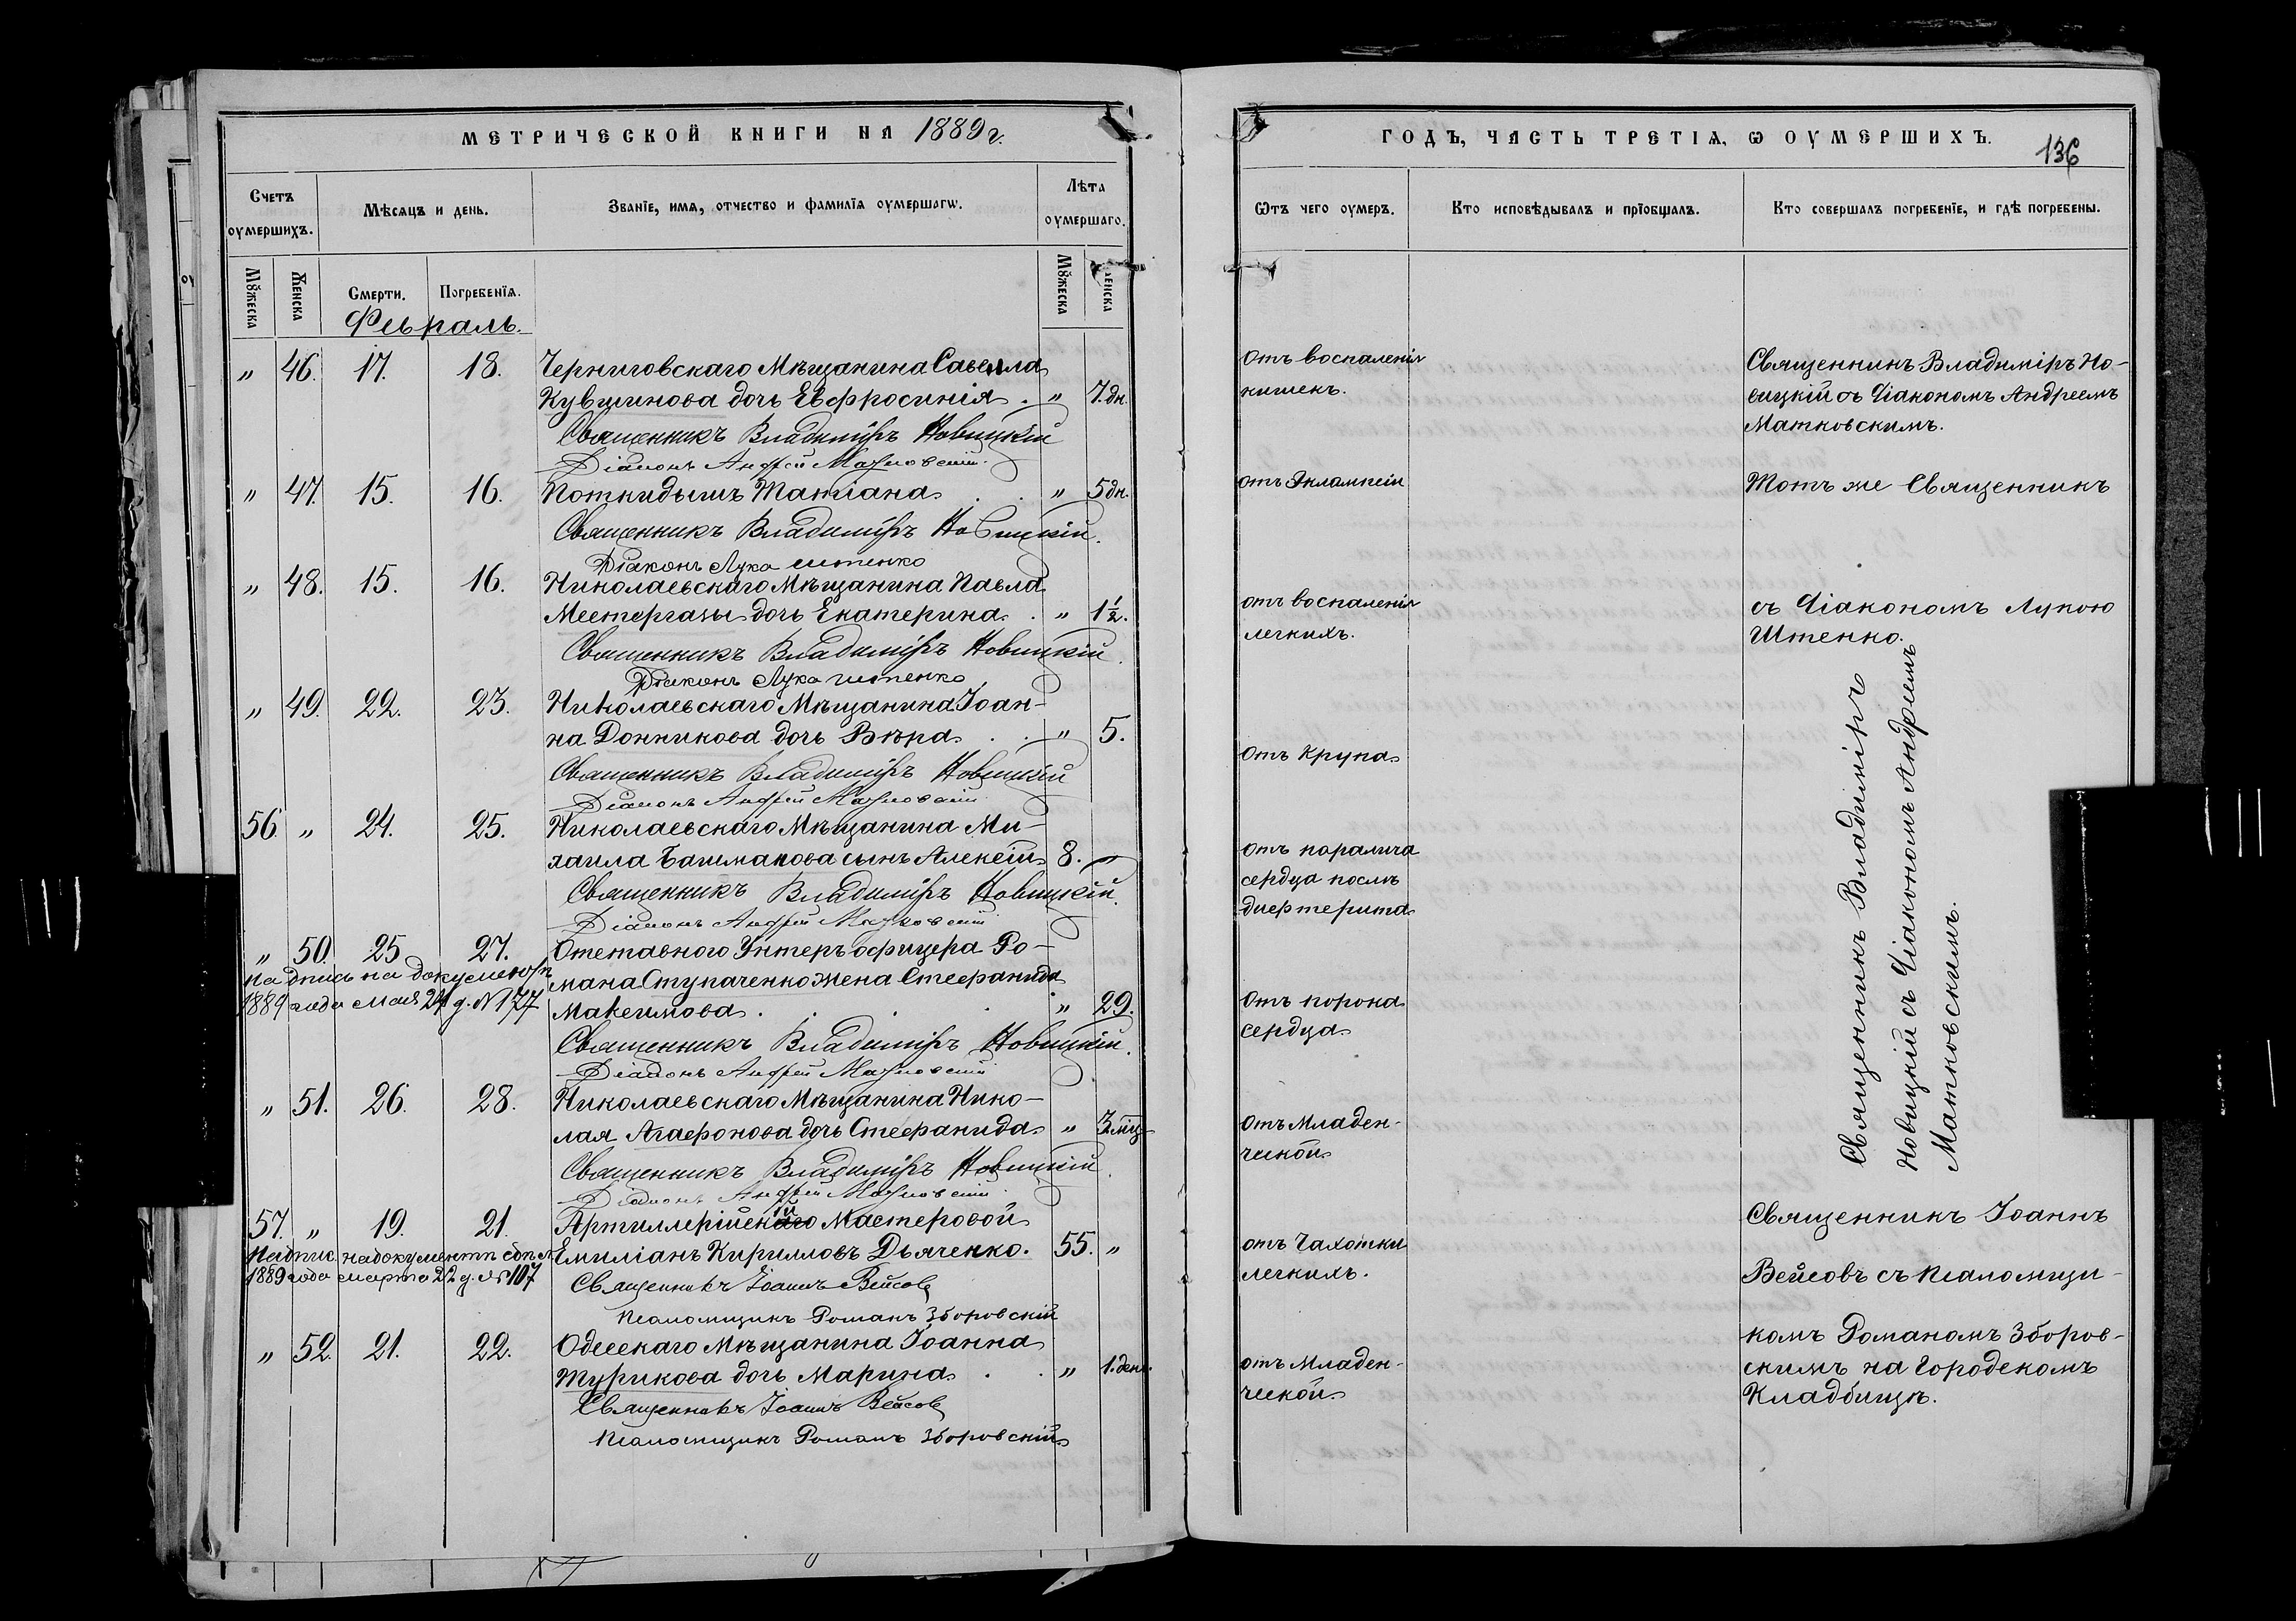 МЕТРИЧЕСКОЙ КНИГИ НА 1889 г.
Счетъ оумершихъ.
Мѣсяцъ и день.
Званіе, имя, отчество и фамилія оумершагѡ.
Лѣта оумершаго.
Мꙋжеска
Женска
Смерти.
Погребенїя.
Мꙋжеска
Женска
Февраль.
" 46. 17. 18. Черниговскаго Мѣщанина Савелла
Кувшинова дочь Евфросинія. " 7. дн.
Священникъ Владиміръ Новицкій
Діаконъ Андрей Матковскій.
" 47. 15. 16. Поткидышъ Татіана . . " 5 дн.
Священникъ Владиміръ Новицкій.
Діаконъ Лука Штенко
" 48. 15. 16. Николаевскаго Мѣщанина Павла
Местергазы дочь Екатерина . " 1½.
Священникъ Владиміръ Новицкій.
Діаконъ Лука Штенко
" 49. 22. 23. Николаевскаго Мѣщанина Іоан-
на Донникова дочь Вѣра . . " 5.
Священникъ Владиміръ Новицкій
Діаконъ Андрей Матковскій
56. " 24. 25. Николаевскаго Мѣщанина Ми-
хаила Башмакова сынъ Алексій 8. "
Священникъ Владиміръ Новицкій.
Діаконъ Андрей Матковскій
" 50. 25. 27. Отставного Унтеръ офицера Ро-
мана Ступаченко жена Стефанида
Максимова . . . . " 29.
Надпись на документѣ
1889 года мая 24 д. № 177
Священникъ Владиміръ Новицкій.
Діаконъ Андрей Матковскій
" 51. 26. 28. Николаевскаго Мѣщанина Нико-
лая Агафонова дочь Стефанида " 3 мѣц
Священникъ Владиміръ Новицкій.
Діаконъ Андрей Матковскій
57. " 19. 21. Артиллерійскій Мастеровой
Емиліанъ Кирилловъ Дьяченко. 55. "
1889 года марта 22 д. № 107
Священникъ Іоаннъ Вейсовъ
Псаломщикъ Романъ Зборовскій
" 52. 21. 22. Одесскаго Мѣщанина Іоанна
Турикова дочь Марина . . " 1. день.
Священникъ Іоаннъ Вейсовъ
Псаломщикъ Романъ Зборовскій
ГОДЪ, ЧАСТЬ ТРЕТІѦ, Ѡ ОУМЕРШИХЪ.
136
Ѿтъ чего оумеръ.
Кто исповѣдывалъ и прїобщалъ.
Кто совершалъ погребенїе, и гдѣ погребены.
отъ воспаленія
кишекъ.
отъ Эклампсіи
отъ воспаленія
легкихъ.
отъ Крупа
отъ паралича
сердца послѣ
дифтерита
отъ порока
сердца
отъ Младен-
ческой
отъ Чахотки
легкихъ.
отъ Младен-
ческой
Священникъ Владиміръ Но-
вицкій съ Діакономъ Андреемъ
Матковскимъ.
Тотъ же Священникъ
съ Діакономъ Лукою
Штенко.
Священникъ Владиміръ
Новицкій съ Діакономъ Андреемъ
Матковскимъ.
Священникъ Іоаннъ
Вейсовъ съ псаломщи-
комъ Романомъ Зборов-
скимъ на Городскомъ
Кладбищѣ.